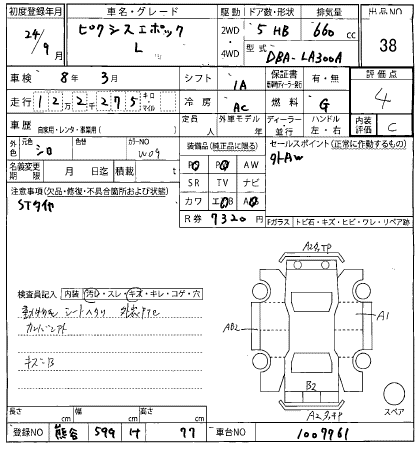 初度登録年月 車名・グレード 駆動 ドア数・形状 排気量 出品NO
24/9月 ピクシスエポック L 2WD 4WD 5 HB 660 cc 38
型式 DBA-LA300A
車検 8年 3月 シフト IA 保証書 有・無 評価点
走行 122千275 キロ・マイル 冷房 AC 燃料 G 4
車歴 自家用・レンタ・事業用( ) 定員 人 外車モデル 年 ディーラー 並行 ハンドル 左・右 内装評価 C
外色 元色 シロ 色替 カラーNO W09 装備品(純正品に限る) セールスポイント(正常に動作するもの)
名義変更期限 月 日迄 積載 PS PW AW 外AW
SR TV ナビ
注意事項(欠品・修復・不具合箇所および状態) カワ エB AB
STタイヤ R券 7320 円
Fガラス トビ石・キズ・ヒビ・ワレ・リペア跡
検査員記入 内装 汚レ・スレ・キズ・キレ・コゲ・穴
シートヘタリ
キズ・B
A2
AB2
A1
B2
A2
スペア
長さ cm 幅 cm 高さ cm
登録NO 熊谷 599 け 77 車台NO 1007961